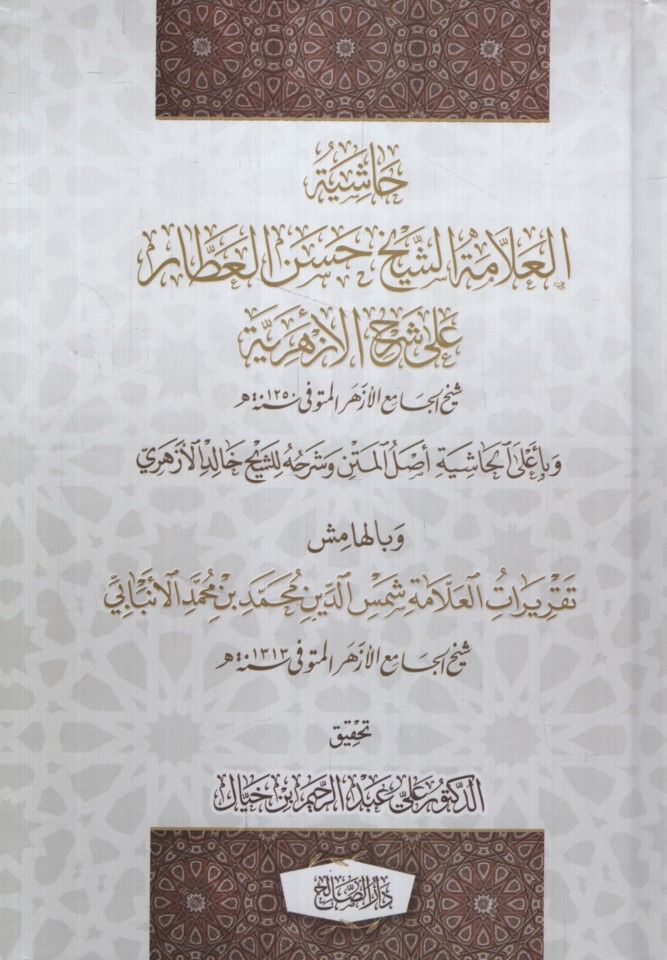 حَاشِيَةُ
العَلاَّمَةِ الشَّيْخِ حَسَن العَطَّار
عَلَى شَرْحِ الأَزْهَرِيَّة
شيخ الجامع الأزهر المتوفى سنة ١٢٥٠ هـ
وَبِأَعْلَى الحَاشِيَةِ أَصْلُ المَتْنِ وَشَرْحُهُ لِلشَّيْخِ خَالِدِ الأَزْهَرِيّ
وَبِالهَامِش
تَقْرِيرَاتُ العَلَّامَةِ شَمْسِ الدِّينِ مُحَمَّدِ بْنِ مُحَمَّدِ الأَنْبَابِيّ
شيخ الجامع الأزهر المتوفى سنة ١٣١٣ هـ
تحقيق
الدكتور علي عبد الرحيم بن خيال
دَارُ الصَّالِح